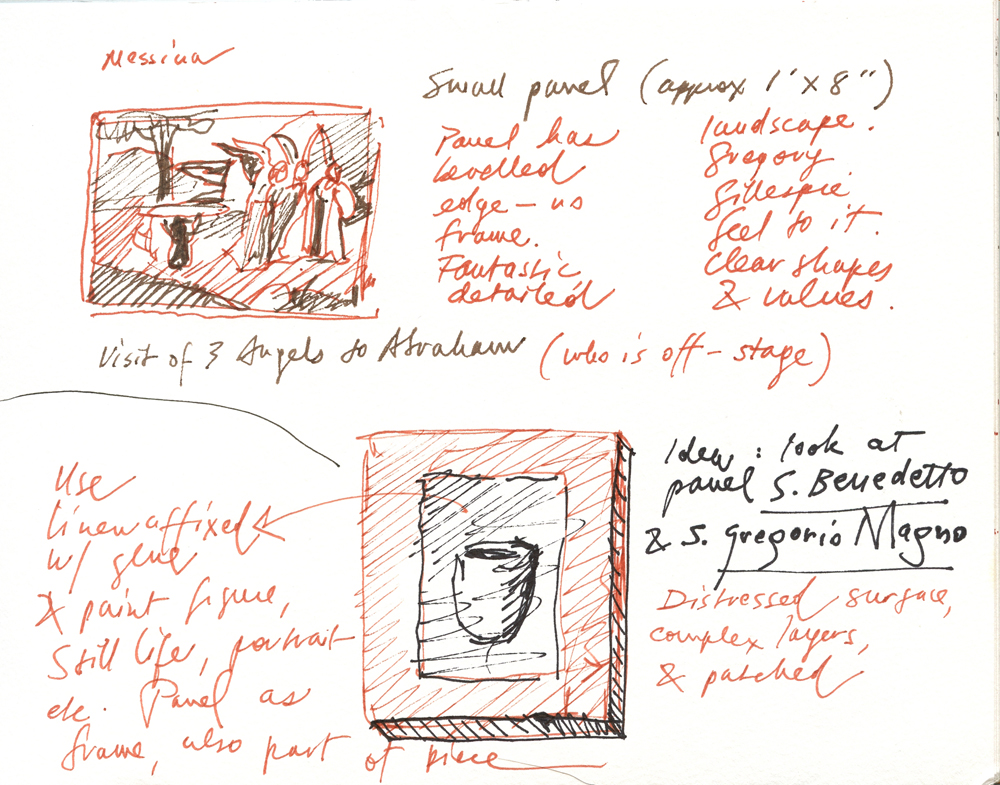 Messina
Small panel (approx 1' x 8")
Panel has
bevelled
edge – no
frame.
Fantastic
detailed
landscape.
Gregory
Gillespie
feel to it.
Clear shapes
& values.
Visit of 3 Angels to Abraham (who is off-stage)
Use
linen affixed
w/ glue
& paint figure,
Still life, portrait
etc. Panel as
frame, also part of piece
Idea: look at
panel S. Benedetto
& S. Gregorio Magno
Distressed surface,
complex layers,
& patched